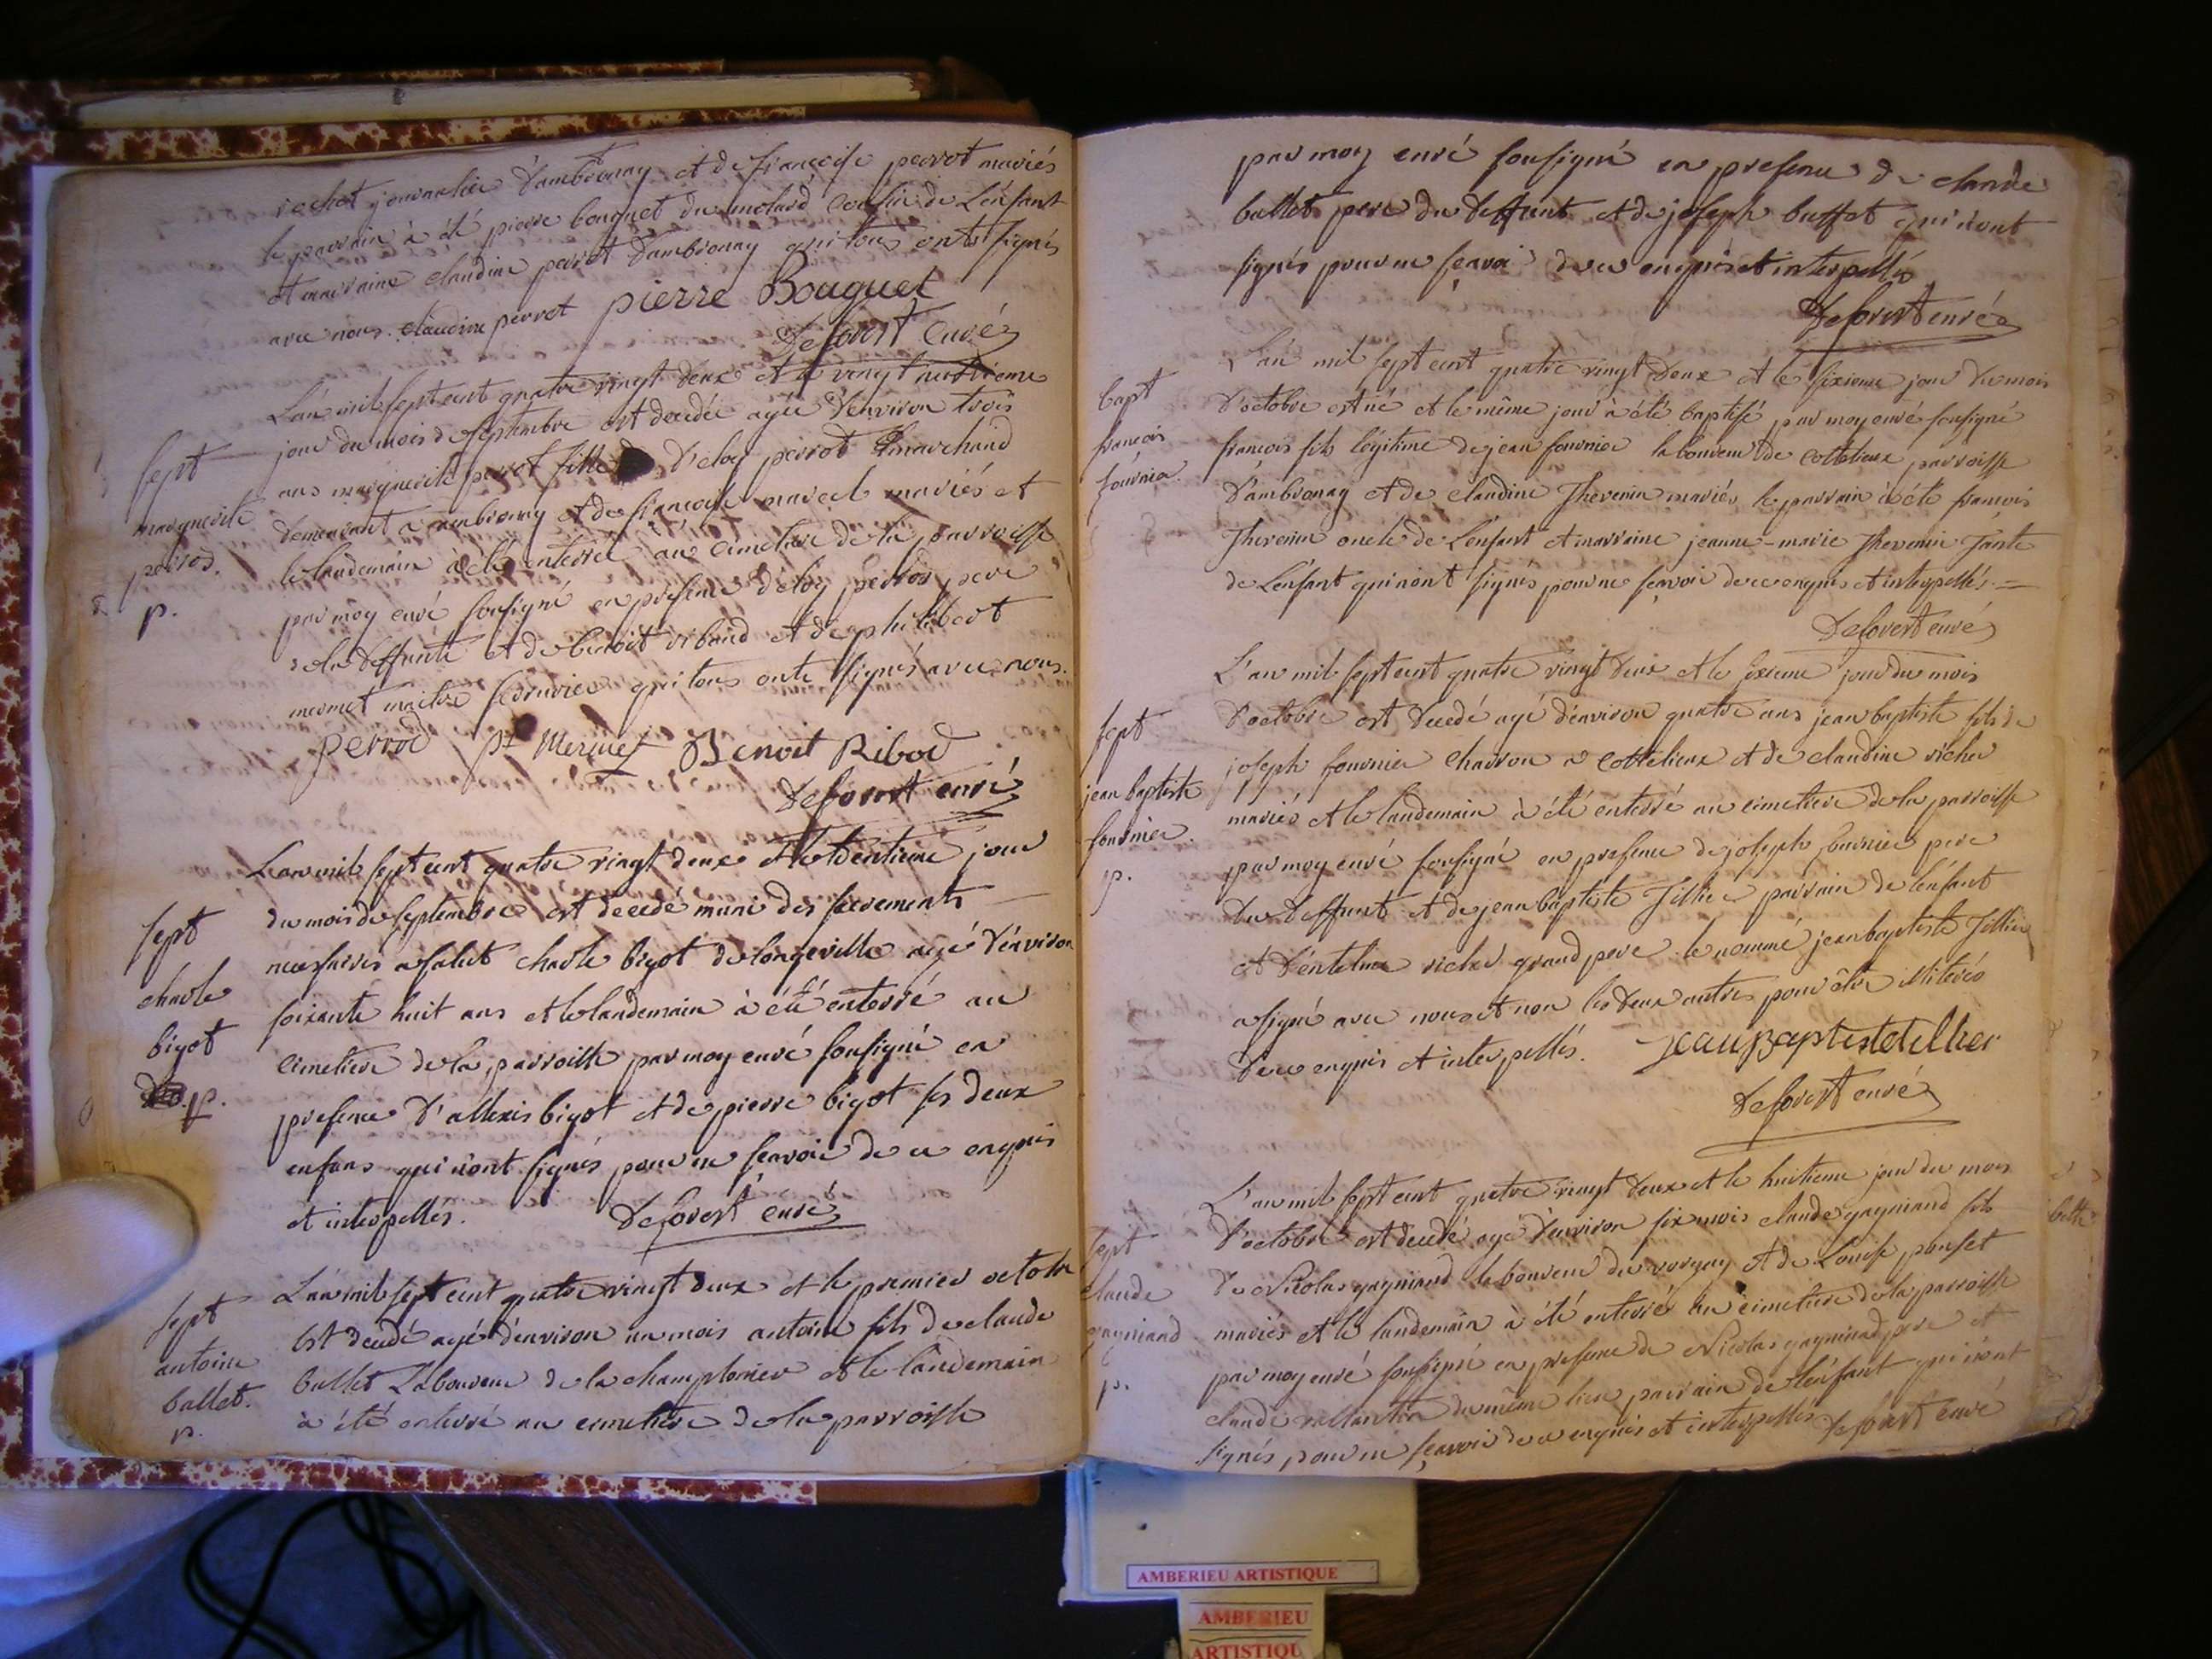 rochet journalier d'ambronay et de françoise perrot mariés
le parrain à été pierre bouquet du molard cousin de L'enfant
et marraine claudine perrot d'ambronay qui tous onts signés
avec nous. claudine perrot pierre Bouquet
Deforest Curé
L'an mil sept cent quatre vingt deux et le vingt
jour du mois de septembre est decedée agée d'environ trois
ans marguerite perrot fille d'eloy perrot marchand
demeurant a ambronay et de françoise marcel mariés et
le landemain à été enterrée au cimetiere de la parroisse
par moy curé sousigné en presence d'eloy perrod pere
de la deffunte et de benoit ribaud et de philibert
mermet maitre qui tous onts signés avec nous.
perrod pt Mermet Benoit Ribod
Deforest curé
sept
marguerite
perrod.
p.
L'an mil sept cent quatre vingt deux et le trentieme jour
du mois de septembre est decedé muni des sacrements
necessaires a salut charle bigot de longeville agé d'environ
soixante huit ans et le landemain à été enterré au
cimetiere de la parroisse par moy curé sousigné en
presence d'allexis bigot et de pierre bigot ses deux
enfans qui n'ont signés pour ne sçavoir de ce enquis
et interpellés. Deforest curé
sept
charle
bigot
p.
L'an mil sept cent quatre vingt deux et le premier octobre
est decedé agé d'environ un mois antoine fils de claude
ballet Laboureur de la championier et le landemain
à été enterré au cimetiere de la parroisse
sept
antoine
ballet.
p.
par moy curé sousigné en presence de claude
ballet pere du deffunt et de joseph buffet qui n'ont
signés pour ne sçavoir de ce enquis et interpellés
Deforest curé
bapt
francois
fournier.
L'an mil sept cent quatre vingt deux et le sixieme jour du mois
d'octobre est né et le même jour à été baptisé par moy curé sousigné
francois fils legitime de jean fournier laboureur de cottelieux parroisse
d'ambronay et de claudine Thevenin mariés le parrain à été francois
Thevenin oncle de L'enfant et marraine jeanne-marie Thevenin Tante
de L'enfant qui n'ont signés pour ne sçavoir de ce enquis et interpellés.
Deforest curé
sept
jean baptiste
fournier.
p.
L'an mil sept cent quatre vingt deux et le sixieme jour du mois
d'octobre est decedé agé d'environ quatre ans jean baptiste fils de
joseph fournier charron a cottelieux et de claudine richer
mariés et le landemain à été enterré au cimetiere de la parroisse
par moy curé sousigné en presence de joseph fournier pere
du deffunt et de jean baptiste Tillier parrain de l'enfant
et d'entelme richer grand pere le nommé jean baptiste Tillier
a signé avec nous et non les deux autres pour être illiterés
de ce enquis et interpellés. jean Baptiste tellier
Deforest curé
sept
claude
gagniand
p.
L'an mil sept cent quatre vingt deux et le huitieme jour du mois
d'octobre est decedé agé d'environ six mois claude gagniand fils
de Nicolas gagniand laboureur du vorgey et de Louise ponset
mariés et le landemain à été enterré au cimetiere de la parroisse
par moy curé sousigné en presence de Nicolas gagniand pere et
claude du même lieu parrain de L'enfant qui n'ont
signés pour ne sçavoir de ce enquis et interpellés Deforest curé
AMBERIEU ARTISTIQUE
AMBERIEU
ARTISTIQU